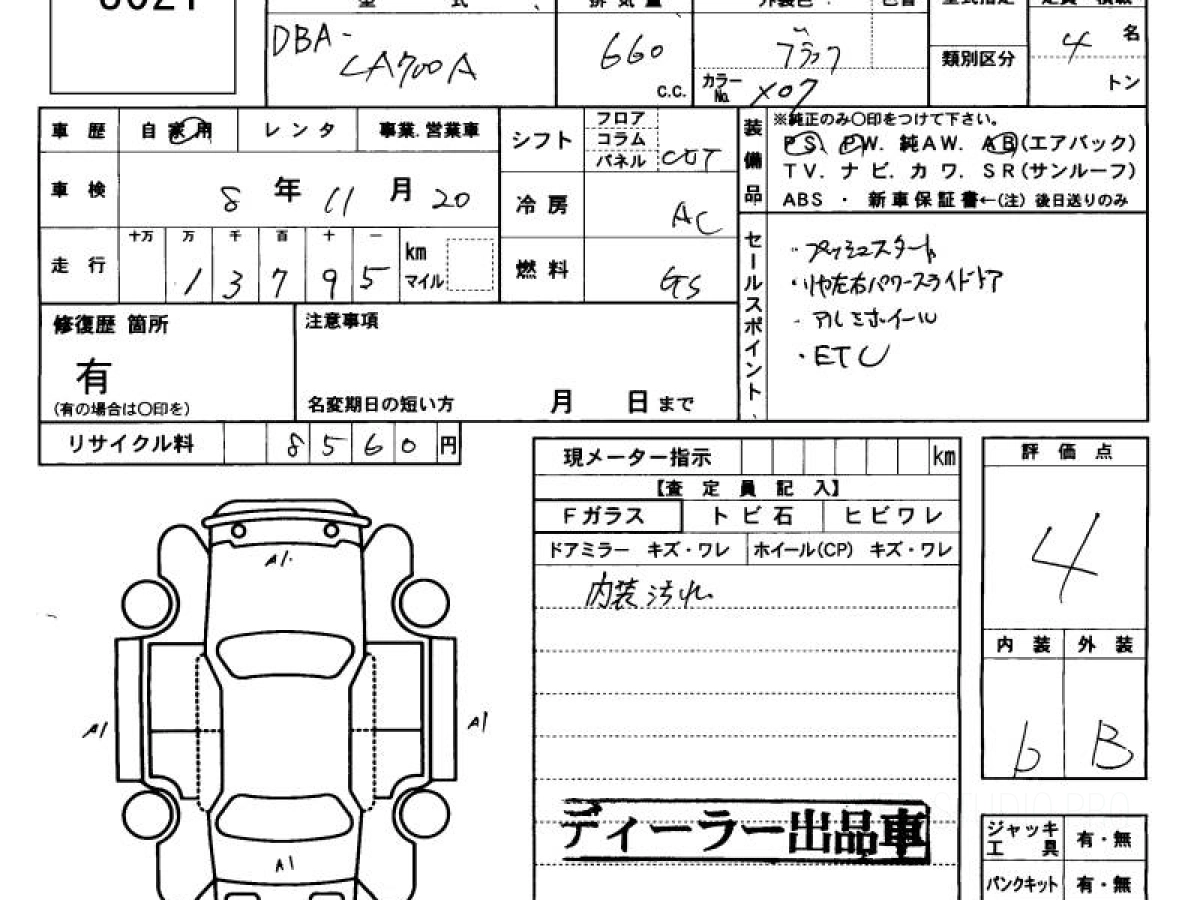 DBA-
LA700A
660
c.c.
ブラック
カラー
No.
X07
類別区分
4 名
トン
車 歴 自 家 用 レ ン タ 事業.営業車
車 検 8 年 11 月 20
走 行
十万 万 千 百 十 一
1 3 7 9 5
km
マイル
シフト
フロア
コラム
パネル
CVT
冷 房 AC
燃 料 GS
装備品
※純正のみ〇印をつけて下さい。
PS. PW. 純AW. AB(エアバック)
TV. ナビ. カワ. SR(サンルーフ)
ABS ・ 新車保証書←(注) 後日送りのみ
セールスポイント
・プッシュスタート
・リヤ左右パワースライドドア
・アルミホイール
・ETC
修復歴 箇所
有
(有の場合は〇印を)
注意事項
名変期日の短い方 月 日 まで
リサイクル料 8 5 6 0 円
現メーター指示 km
【査 定 員 記 入】
Fガラス ト ビ 石 ヒ ビ ワ レ
ドアミラー キズ・ワレ ホイール(CP) キズ・ワレ
内装汚れ
ディーラー出品車
評 価 点
4
内 装 外 装
b B
ジャッキ
工 具
有・無
パンクキット 有・無
A1
A1
A1
A1